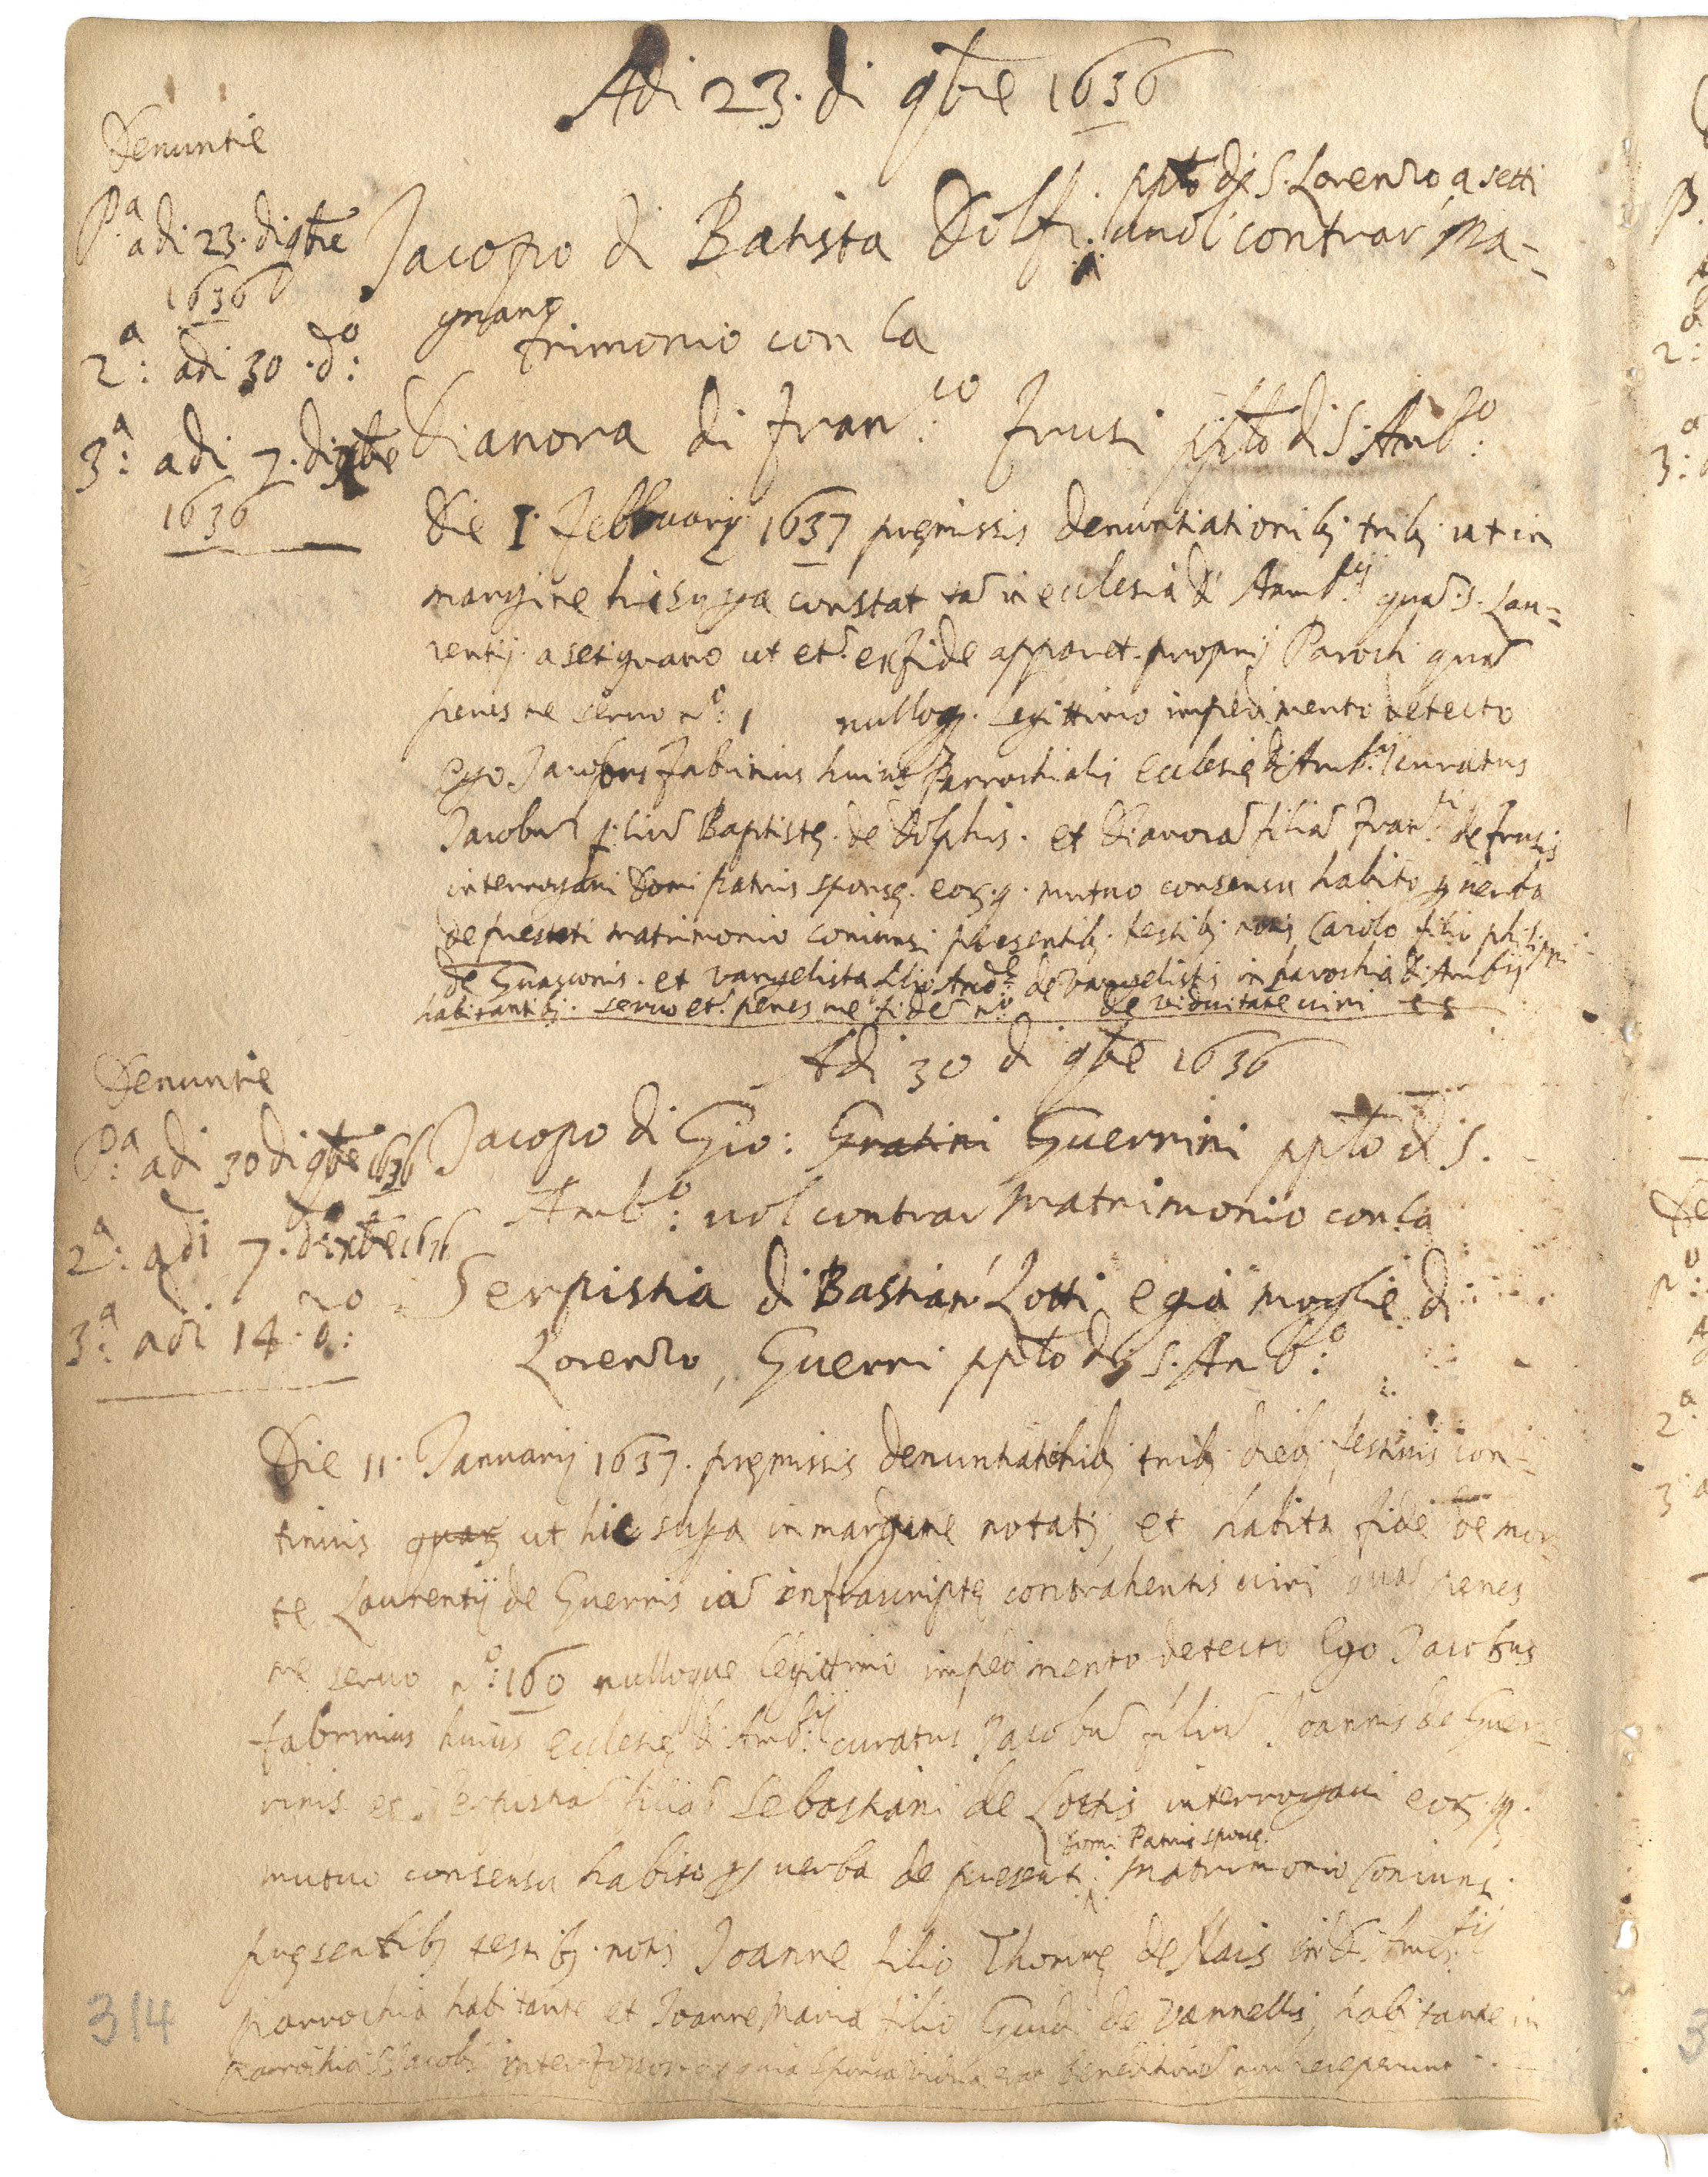 Adi 23. di 9bre 1636
Denuntie
Pa adi 23. di 9bre
1636
2a: adi 30 . do:
3a: adi 7. di xbre
1636
ppto di S. Lorenzo a setti
gnano
Jacopo di Batista Dolfi vuol contrar Ma-
trimonio con la
Dianora di Franco: Frusi ppto di S. Ambo:
Die 1. Februarij 1637 premissis denuntiationib; trib; ut in
margine hic supra constat tā in ecclesia S. Ambij quā S. Lau-
rentij a setignano ut et. ex fide apparet proprij Parochi quā
penes me servo no: 1 nulloq; legittimo impedimento detecto
Ego Jacobus Fabrinius huius Parrochialis Ecclesie S. Ambij curatus
Jacobū filiū Baptiste de Dolphis. et Dianorā filiā Franci de Frusis
interrogavi Domi patris sponse. eorq. mutuo consensu habito p verba
de presenti matrimonio coniunxi presentib; testib; notis Carolo filio philippi
de Guasconis. et vangelista filio Ande de Vangelistis in parochia S. Ambij
habitantib; servo et. penes me fidē no de viduitate viri
Adi 30 di 9bre 1636
Denuntie
Pa: adi 30 di 9bre 1636
2a: adi 7. di xbre 1636
3a: adi 14. do:
Jacopo di Gio: Gratini Guerrini ppto di S.
Ambo: vol contrar Matrimonio con la
Serpistia di Bastian Lotti, e già moglie di
Lorenzo, Guerri ppto di S. Ambo:
Die 11. Januarij 1637. premissis denuntiationib; trib; dieb; festivis con-
tinuis quar ut hic supra in margine notatis, et habita fide de mor
te Laurentij de Guerris iā infrascripte contrahentis viri quā penes
me servo no: 160 nulloque legittimo impedimento detecto Ego Jacobus
fabrinius huius Ecclesie S. Ambij curatus Jacobū filiū Joannis de Guer-
rinis et filiā Sebastiani de Lottis interrogavi eorq.
Domi Patris sponse.
mutuo consensu habito p verba de presenti Matrimonio Coniunxi
presentib; testib; notis Joanne filio Thome de Nais in S. Ambtij
parrochia habitante et Joanne Maria filio Guidi de Vannellis, habitante in
Parrochia S Jacobi inter fossos et quia sponsa vidua erat benedictionē non receperunt
314